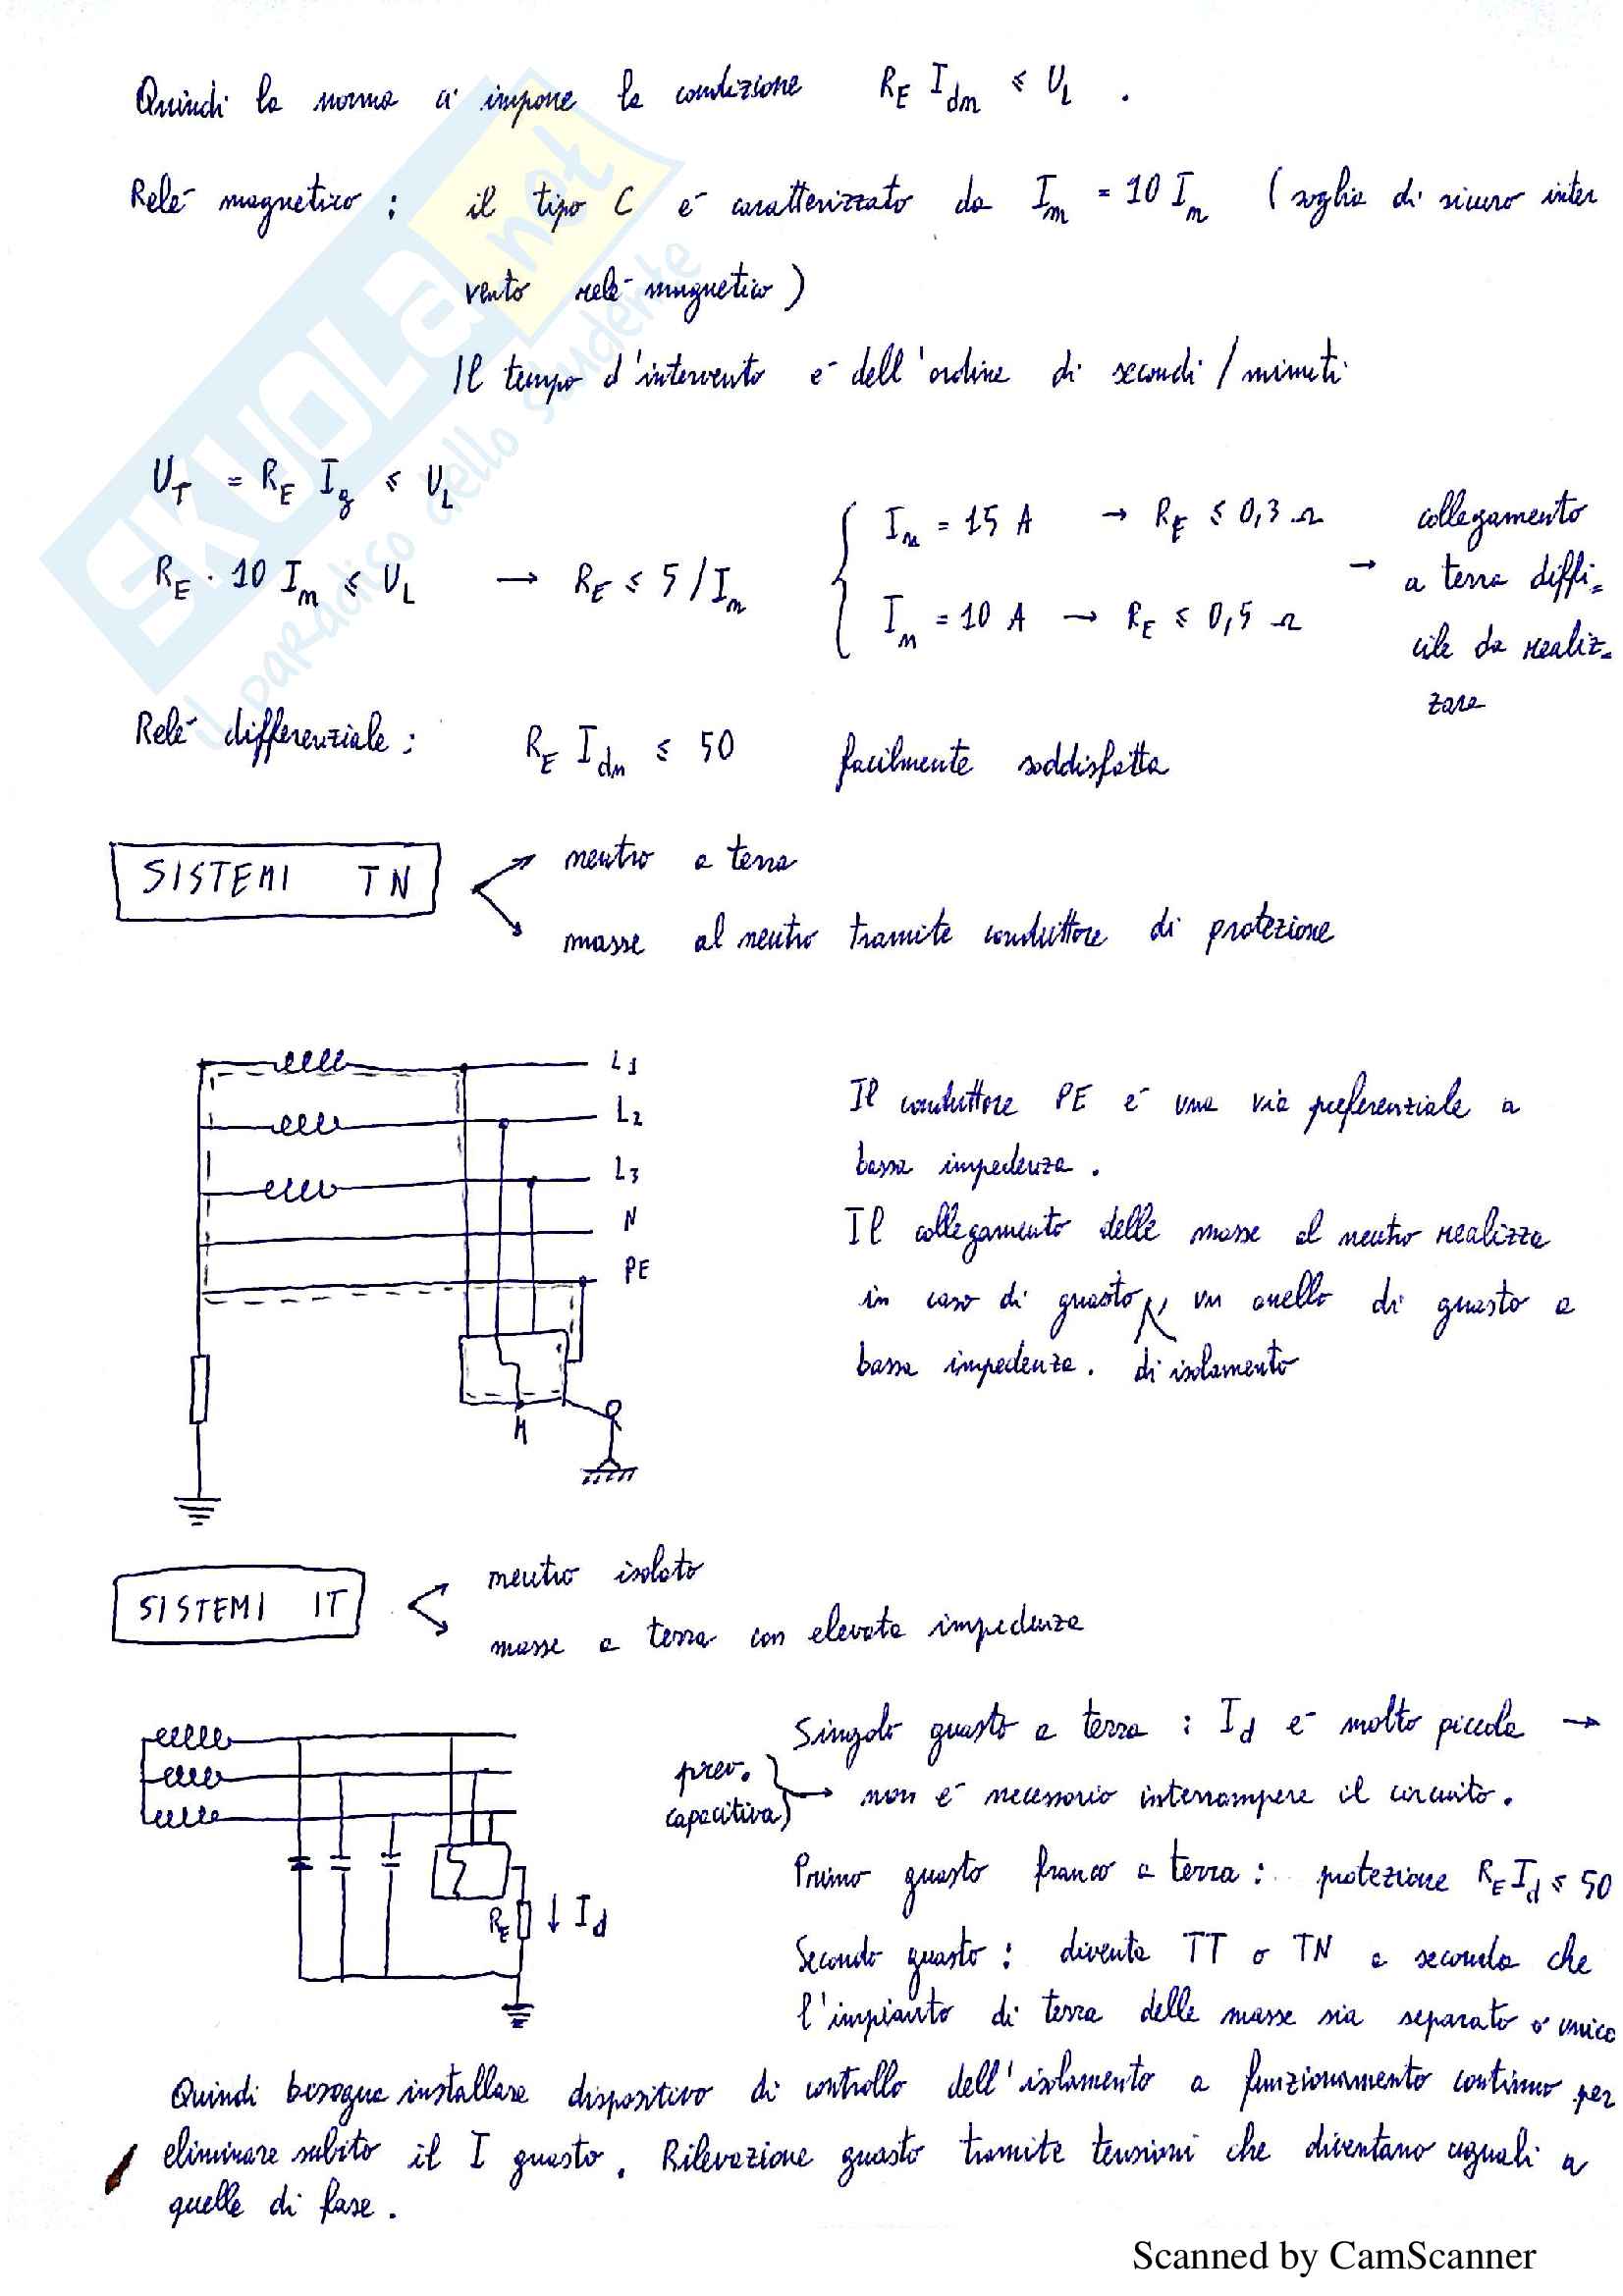 Quindi la norma ci impone la condizione R_E I_dn ≤ U_L .
Relè magnetico : il tipo C è caratterizzato da I_m = 10 I_n ( soglia di sicuro inter
vento relè magnetico )
Il tempo d'intervento è dell'ordine di secondi / minuti
U_T = R_E I_g ≤ U_L
R_E · 10 I_n ≤ U_L → R_E ≤ 5 / I_n
I_n = 15 A → R_E ≤ 0,3 Ω
I_n = 10 A → R_E ≤ 0,5 Ω
→ collegamento
a terra diffi=
cile da realiz=
zare
Relè differenziale : R_E I_dn ≤ 50 facilmente soddisfatta
SISTEMI TN
neutro a terra
masse al neutro tramite conduttore di protezione
L1
L2
L3
N
PE
M
Il conduttore PE è una via preferenziale a
bassa impedenza .
Il collegamento delle masse al neutro realizza
in caso di guasto , un anello di guasto a
bassa impedenza . di isolamento
SISTEMI IT
neutro isolato
masse a terra con elevata impedenza
R_E ↓ I_d
prev.
capacitiva
Singolo guasto a terra : I_d è molto piccola →
→ non è necessario interrompere il circuito .
Primo guasto franco a terra : protezione R_E I_d ≤ 50
Secondo guasto : diventa TT o TN a seconda che
l'impianto di terra delle masse sia separato o unico
Quindi bisogna installare dispositivo di controllo dell'isolamento a funzionamento continuo per
eliminare subito il I guasto . Rilevazione guasto tramite tensioni che diventano uguali a
quelle di fase .
SKUOLA.net
il paradiso dello studente
Scanned by CamScanner